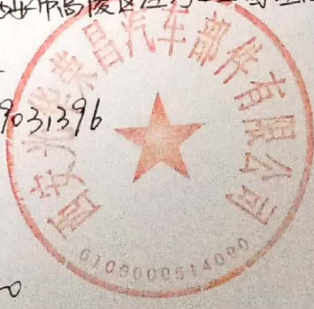 西安市高陵区泾
9031396
西安兆荣昌汽车部件有限公司
6100000514090